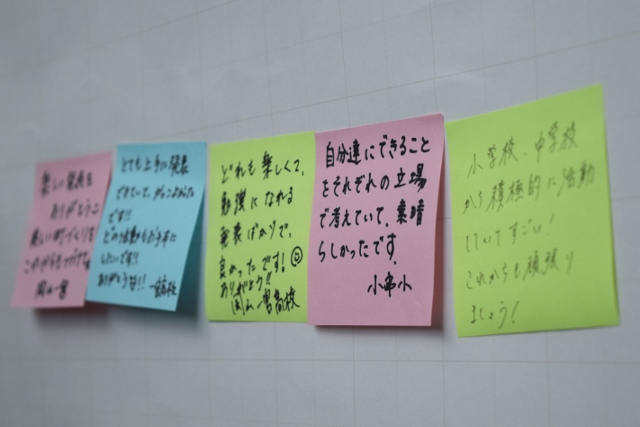 楽しい発表を
ありがとうご
これからも
岡山一宮
とても上手に発表
できていて、かっこよかった
です!!
どの活動もお手本に
したいです!!
ありがとう!! 一宮高校
どれも楽しくて、
勉強になれる
発表ばかりで、
良かったです!
ありがとう!!
岡山一宮高校
自分達にできること
をそれぞれの立場
で考えていて、素晴
らしかったです。
小串小
小学校、中学校
から積極的に活動
していてすごい!
これからも頑張り
ましょう!